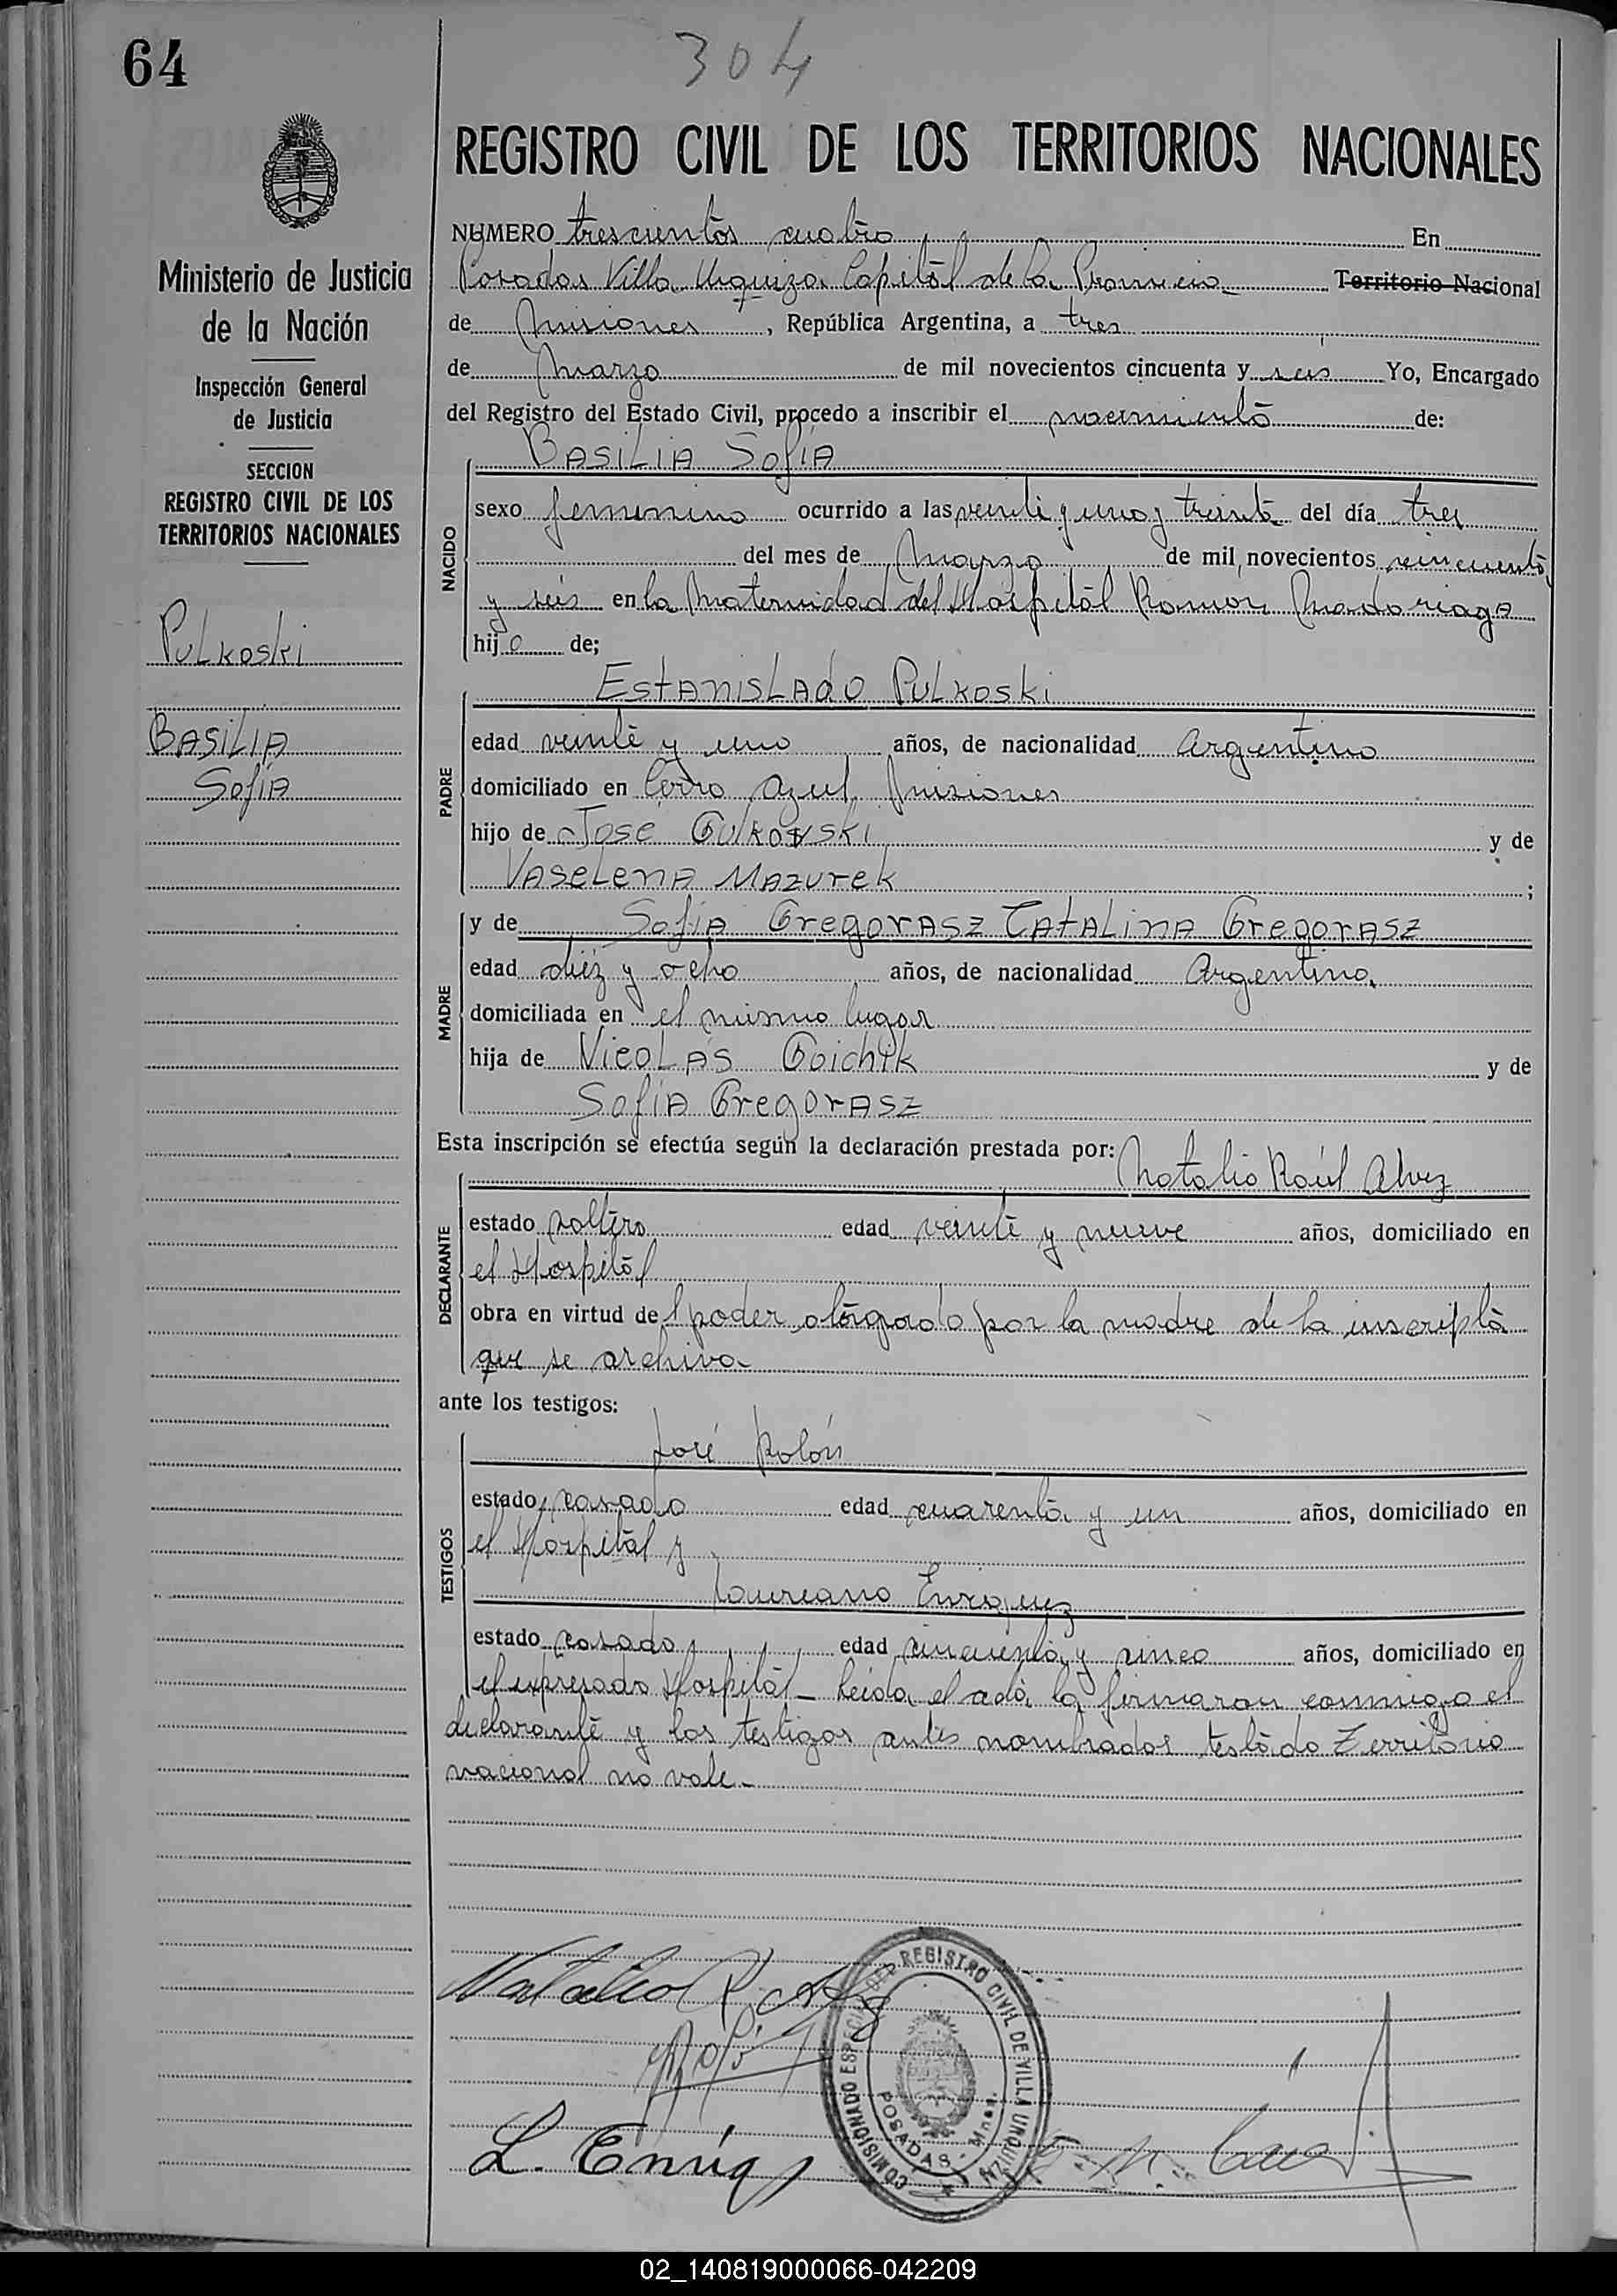 64
304
REGISTRO CIVIL DE LOS TERRITORIOS NACIONALES
Ministerio de Justicia
de la Nación
Inspección General
de Justicia
SECCION
REGISTRO CIVIL DE LOS
TERRITORIOS NACIONALES
Pulkoski
BASILIA
Sofia
NUMERO trescientos cuatro En
Posadas Villa Urquiza Capital de la Provincia Territorio Nacional
de Misiones, República Argentina, a tres
de Marzo de mil novecientos cincuenta y seis Yo, Encargado
del Registro del Estado Civil, procedo a inscribir el nacimiento de:
BASILIA SofiA
NACIDO
sexo femenino ocurrido a las veinte y uno y treinta del día tres
del mes de Marzo de mil novecientos cincuenta
y seis en la Maternidad del Hospital Ramon Madariaga
hijo de;
EstanisLado Pulkoski
PADRE
edad veinte y uno años, de nacionalidad Argentino
domiciliado en Cerro Azul Misiones
hijo de José y de
VaseLena Mazurek ;
MADRE
y de Sofia Gregorasz CatALina Gregorasz
edad diez y ocho años, de nacionalidad Argentina,
domiciliada en el mismo lugar
hija de NicoLás Goichik y de
Sofia Gregorasz
Esta inscripción se efectúa según la declaración prestada por:
Natalio Raúl Alvez
DECLARANTE
estado soltero edad veinte y nueve años, domiciliado en
el Hospital
obra en virtud del poder otorgado por la madre de la inscripta
que se archiva
ante los testigos:
TESTIGOS
José Rolón
estado casado edad cuarenta y un años, domiciliado en
el Hospital y
Laureano Enriquez
estado casado, edad cincuenta y cinco años, domiciliado en
el expresado Hospital - Leída el acta la firmaron conmigo el
declarante y los testigos antes nombrados testado Territorio
nacional no vale.-
Natalio R. Alvez
L. Enriq
COMISIONADO ESPECIAL DEL REGISTRO CIVIL DE VILLA URQUIZA
POSADAS - Mnes.
02_140819000066-042209